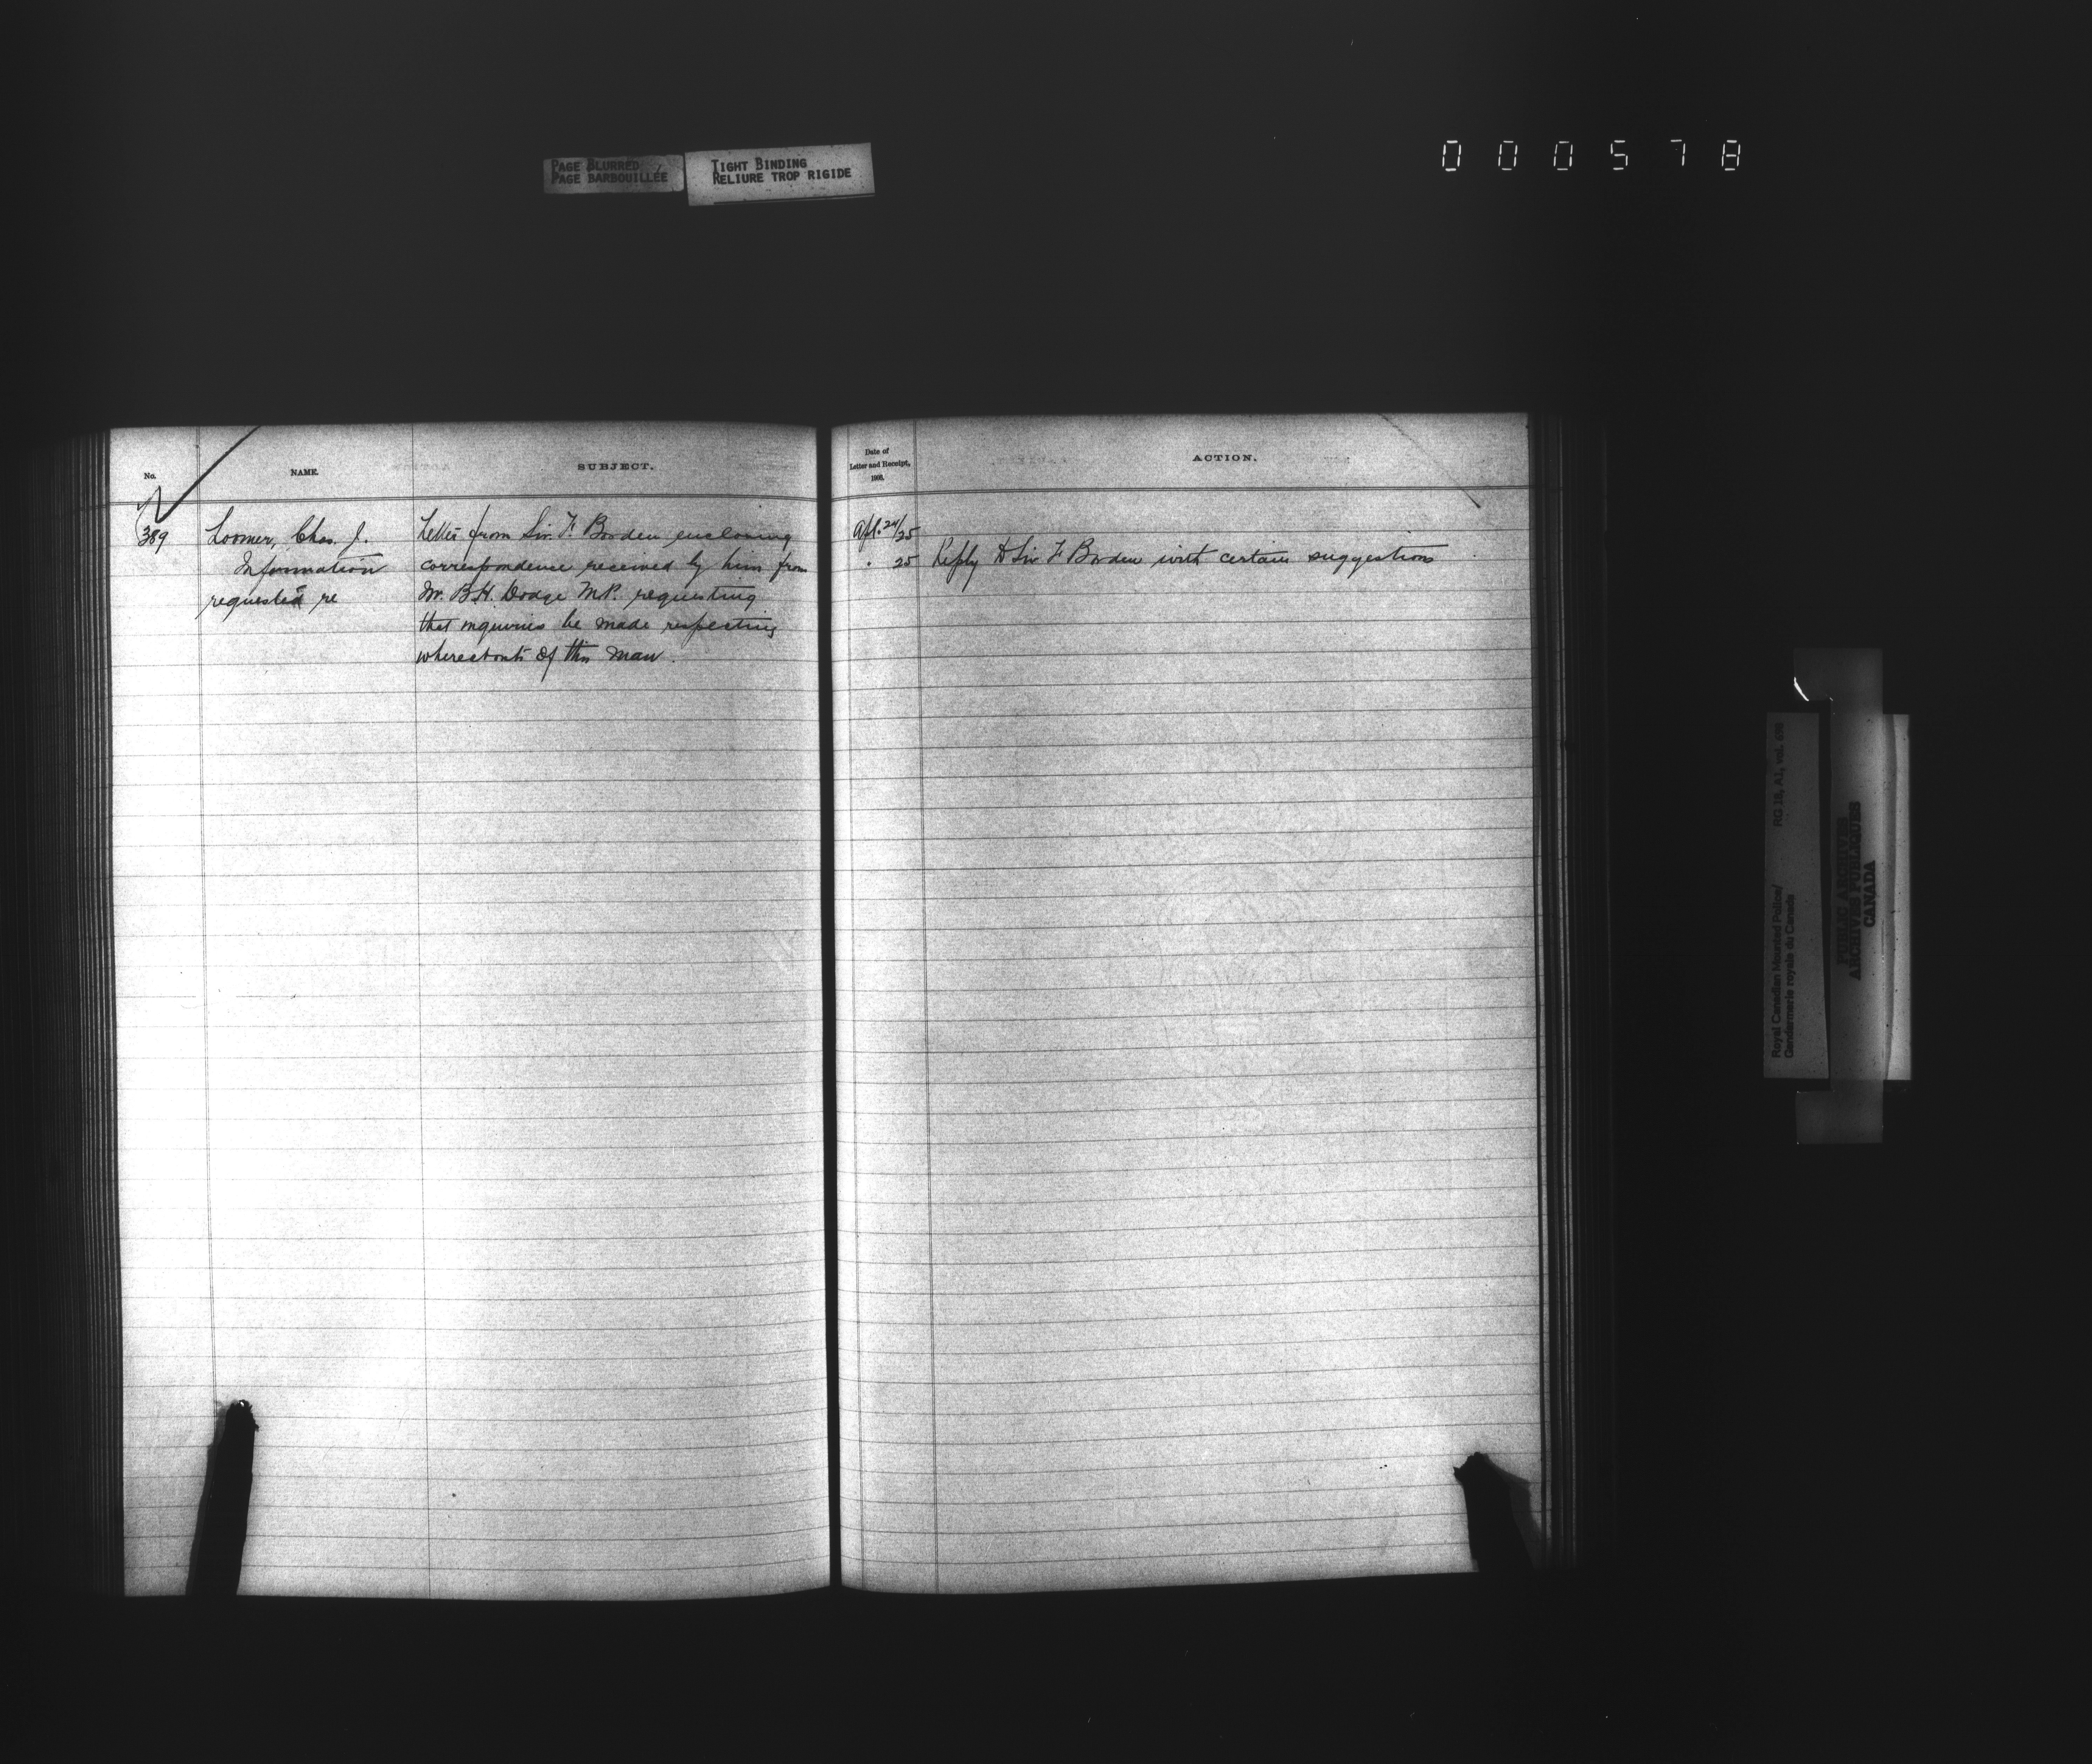 PAGE BLURRED
PAGE BARBOUILLÉE
TIGHT BINDING
RELIURE TROP RIGIDE
000578
No.
NAME.
SUBJECT.
Date of
Letter and Receipt,
ACTION.
389
Loomer, Chas. J.
Information
requested re
Letter from Sir F. Borden enclosing
correspondence received by him from
Mr. B.H. Dodge M.P. requesting
that inquiries be made respecting
whereabouts of this man.
Apl. 24/25
. 25 Reply to Sir F Borden with certain suggestions
Royal Canadian Mounted Police/
Gendarmerie royale du Canada
RG 18, A1, vol.
PUBLIC ARCHIVES
ARCHIVES PUBLIQUES
CANADA